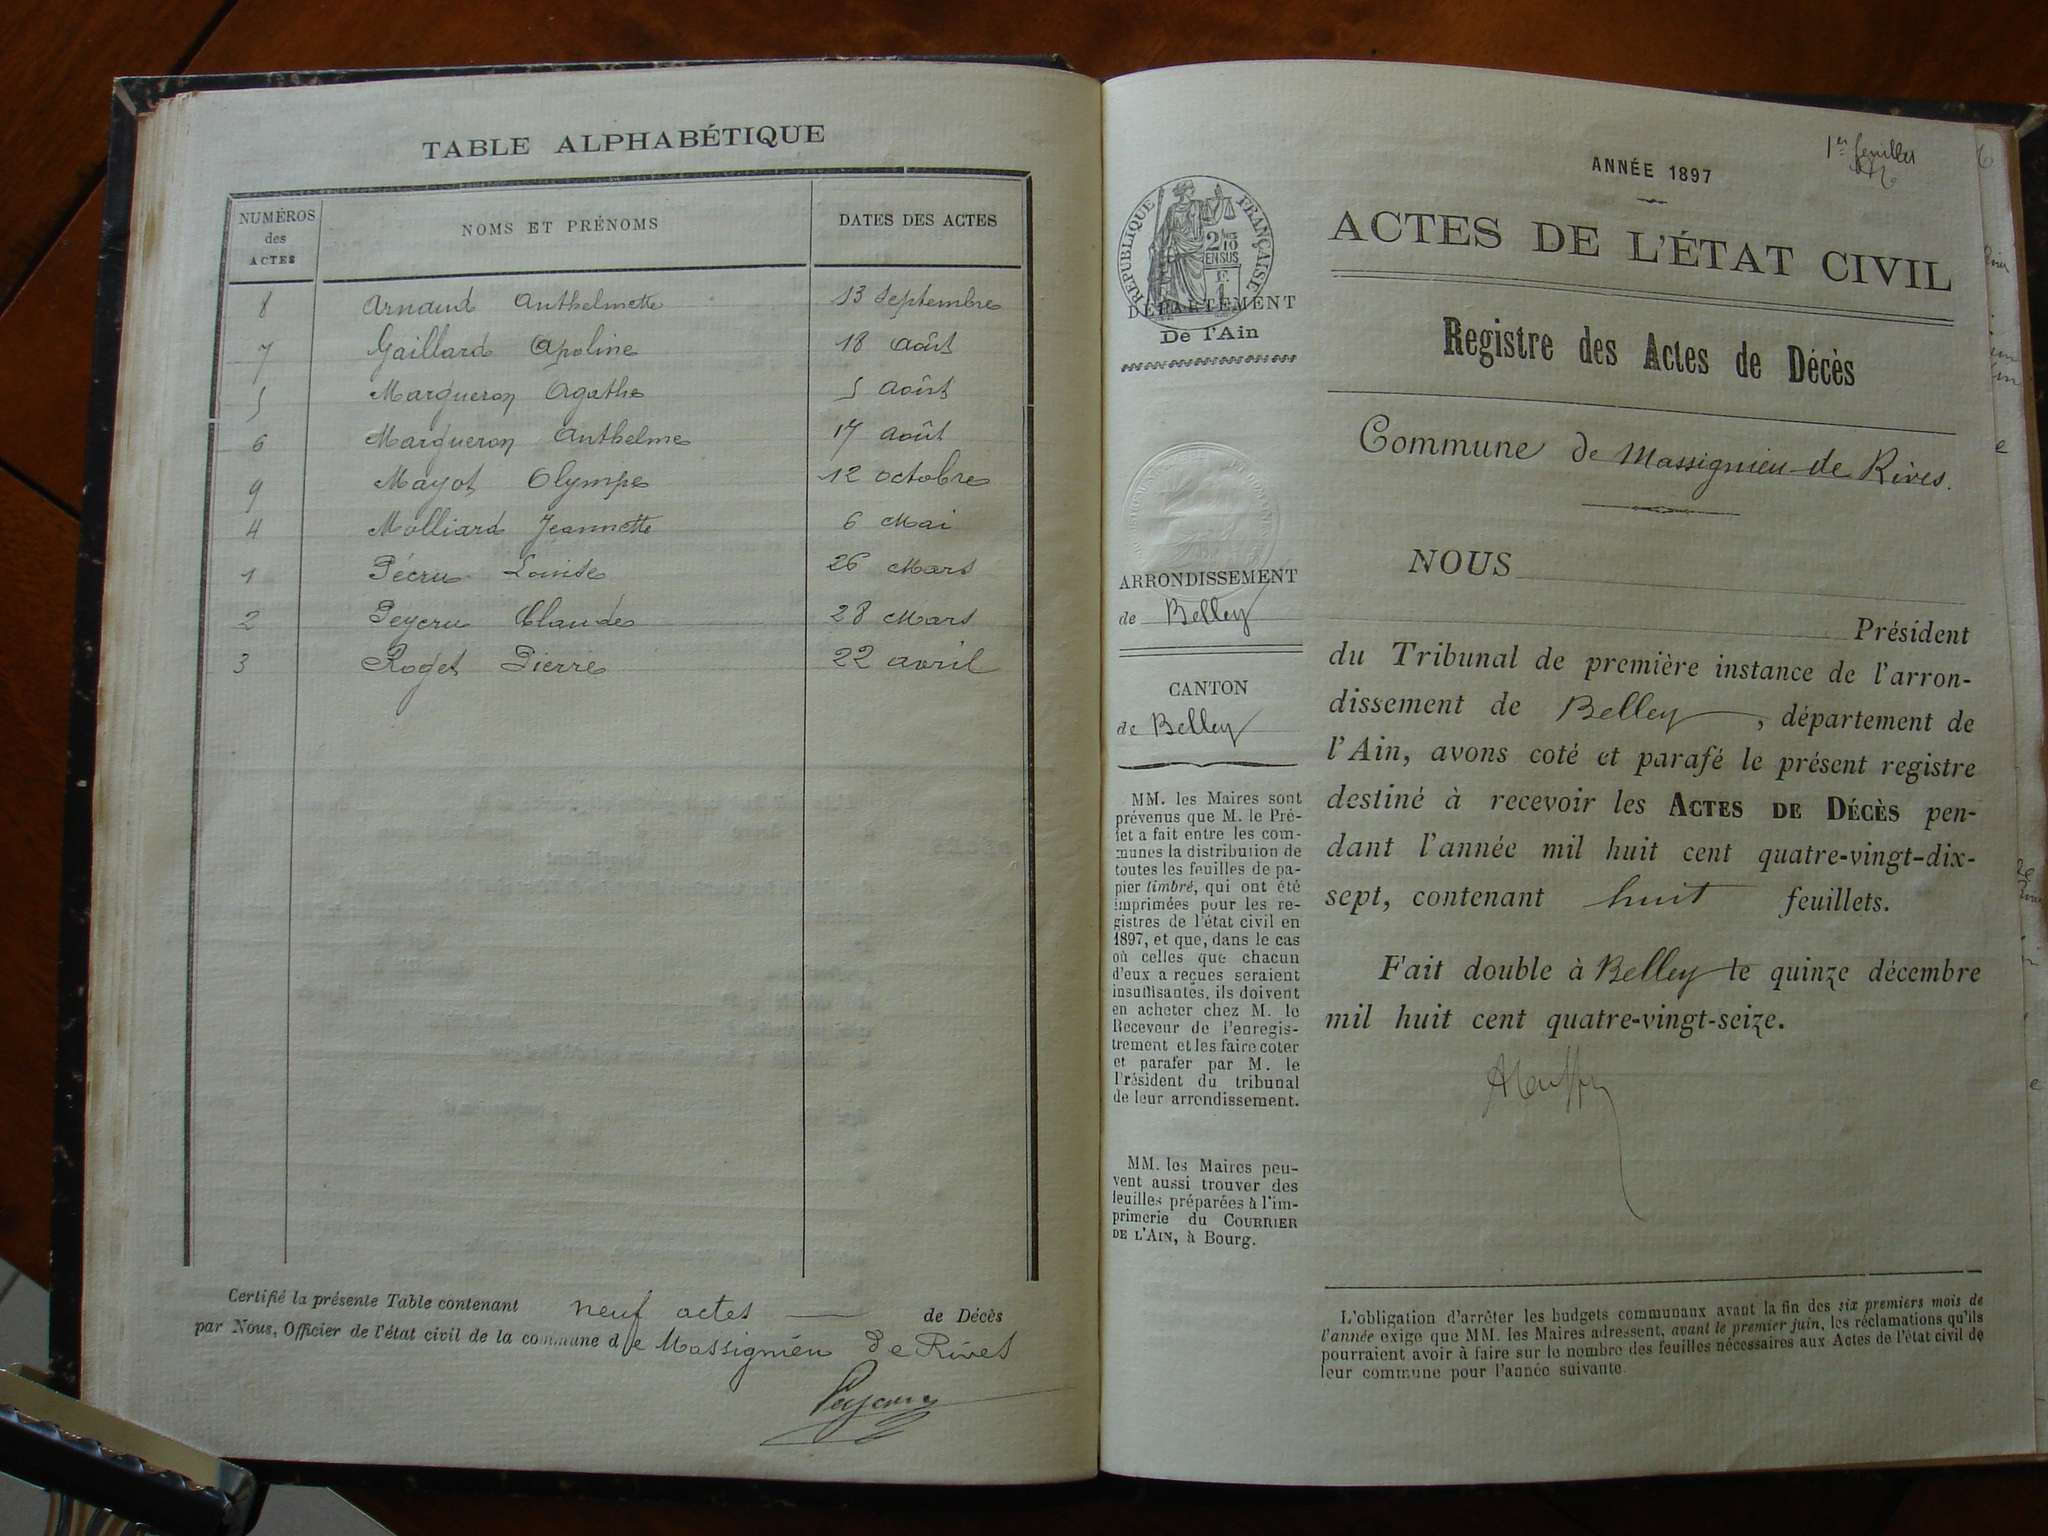 TABLE ALPHABÉTIQUE
NUMÉROS
des
ACTES
NOMS ET PRÉNOMS
DATES DES ACTES
8 Arnaud Anthelmette 13 Septembre
7 Gaillard Apoline 18 Août
5 Marqueron Agathe 5 Août
6 Marqueron Anthelme 17 Août
9 Mayot Olympe 12 Octobre
4 Molliard Jeannette 6 Mai
1 Pécru Louise 26 Mars
2 Peycru Claude 28 Mars
3 Roget Pierre 22 avril
Certifié la présente Table contenant neuf actes de Décès
par Nous, Officier de l'état civil de la commune de Massignieu de Rives
Peycru
1er feuillet
ANNÉE 1897
ACTES DE L'ÉTAT CIVIL
Registre des Actes de Décès
Commune de Massignieu de Rives.
NOUS
Président
du Tribunal de première instance de l'arron-
dissement de Belley, département de
l'Ain, avons coté et parafé le présent registre
destiné à recevoir les ACTES DE DÉCÈS pen-
dant l'année mil huit cent quatre-vingt-dix-
sept, contenant huit feuillets.
Fait double à Belley le quinze décembre
mil huit cent quatre-vingt-seize.
L'obligation d'arrêter les budgets communaux avant la fin des six premiers mois de
l'année exige que MM. les Maires adressent, avant le premier juin, les réclamations qu'ils
pourraient avoir à faire sur le nombre des feuilles nécessaires aux Actes de l'état civil de
leur commune pour l'année suivante.
RÉPUBLIQUE FRANÇAISE
2/10
EN SUS
DÉPARTEMENT
De l'Ain
ARRONDISSEMENT
de Belley
CANTON
de Belley
MM. les Maires sont
prévenus que M. le Pré-
fet a fait entre les com-
munes la distribution de
toutes les feuilles de pa-
pier timbré, qui ont été
imprimées pour les re-
gistres de l'état civil en
1897, et que, dans le cas
où celles que chacun
d'eux a reçues seraient
insuffisantes, ils doivent
en acheter chez M. le
Receveur de l'enregis-
trement et les faire coter
et parafer par M. le
Président du tribunal
de leur arrondissement.
MM. les Maires peu-
vent aussi trouver des
feuilles préparées à l'im-
primerie du COURRIER
DE L'AIN, à Bourg.